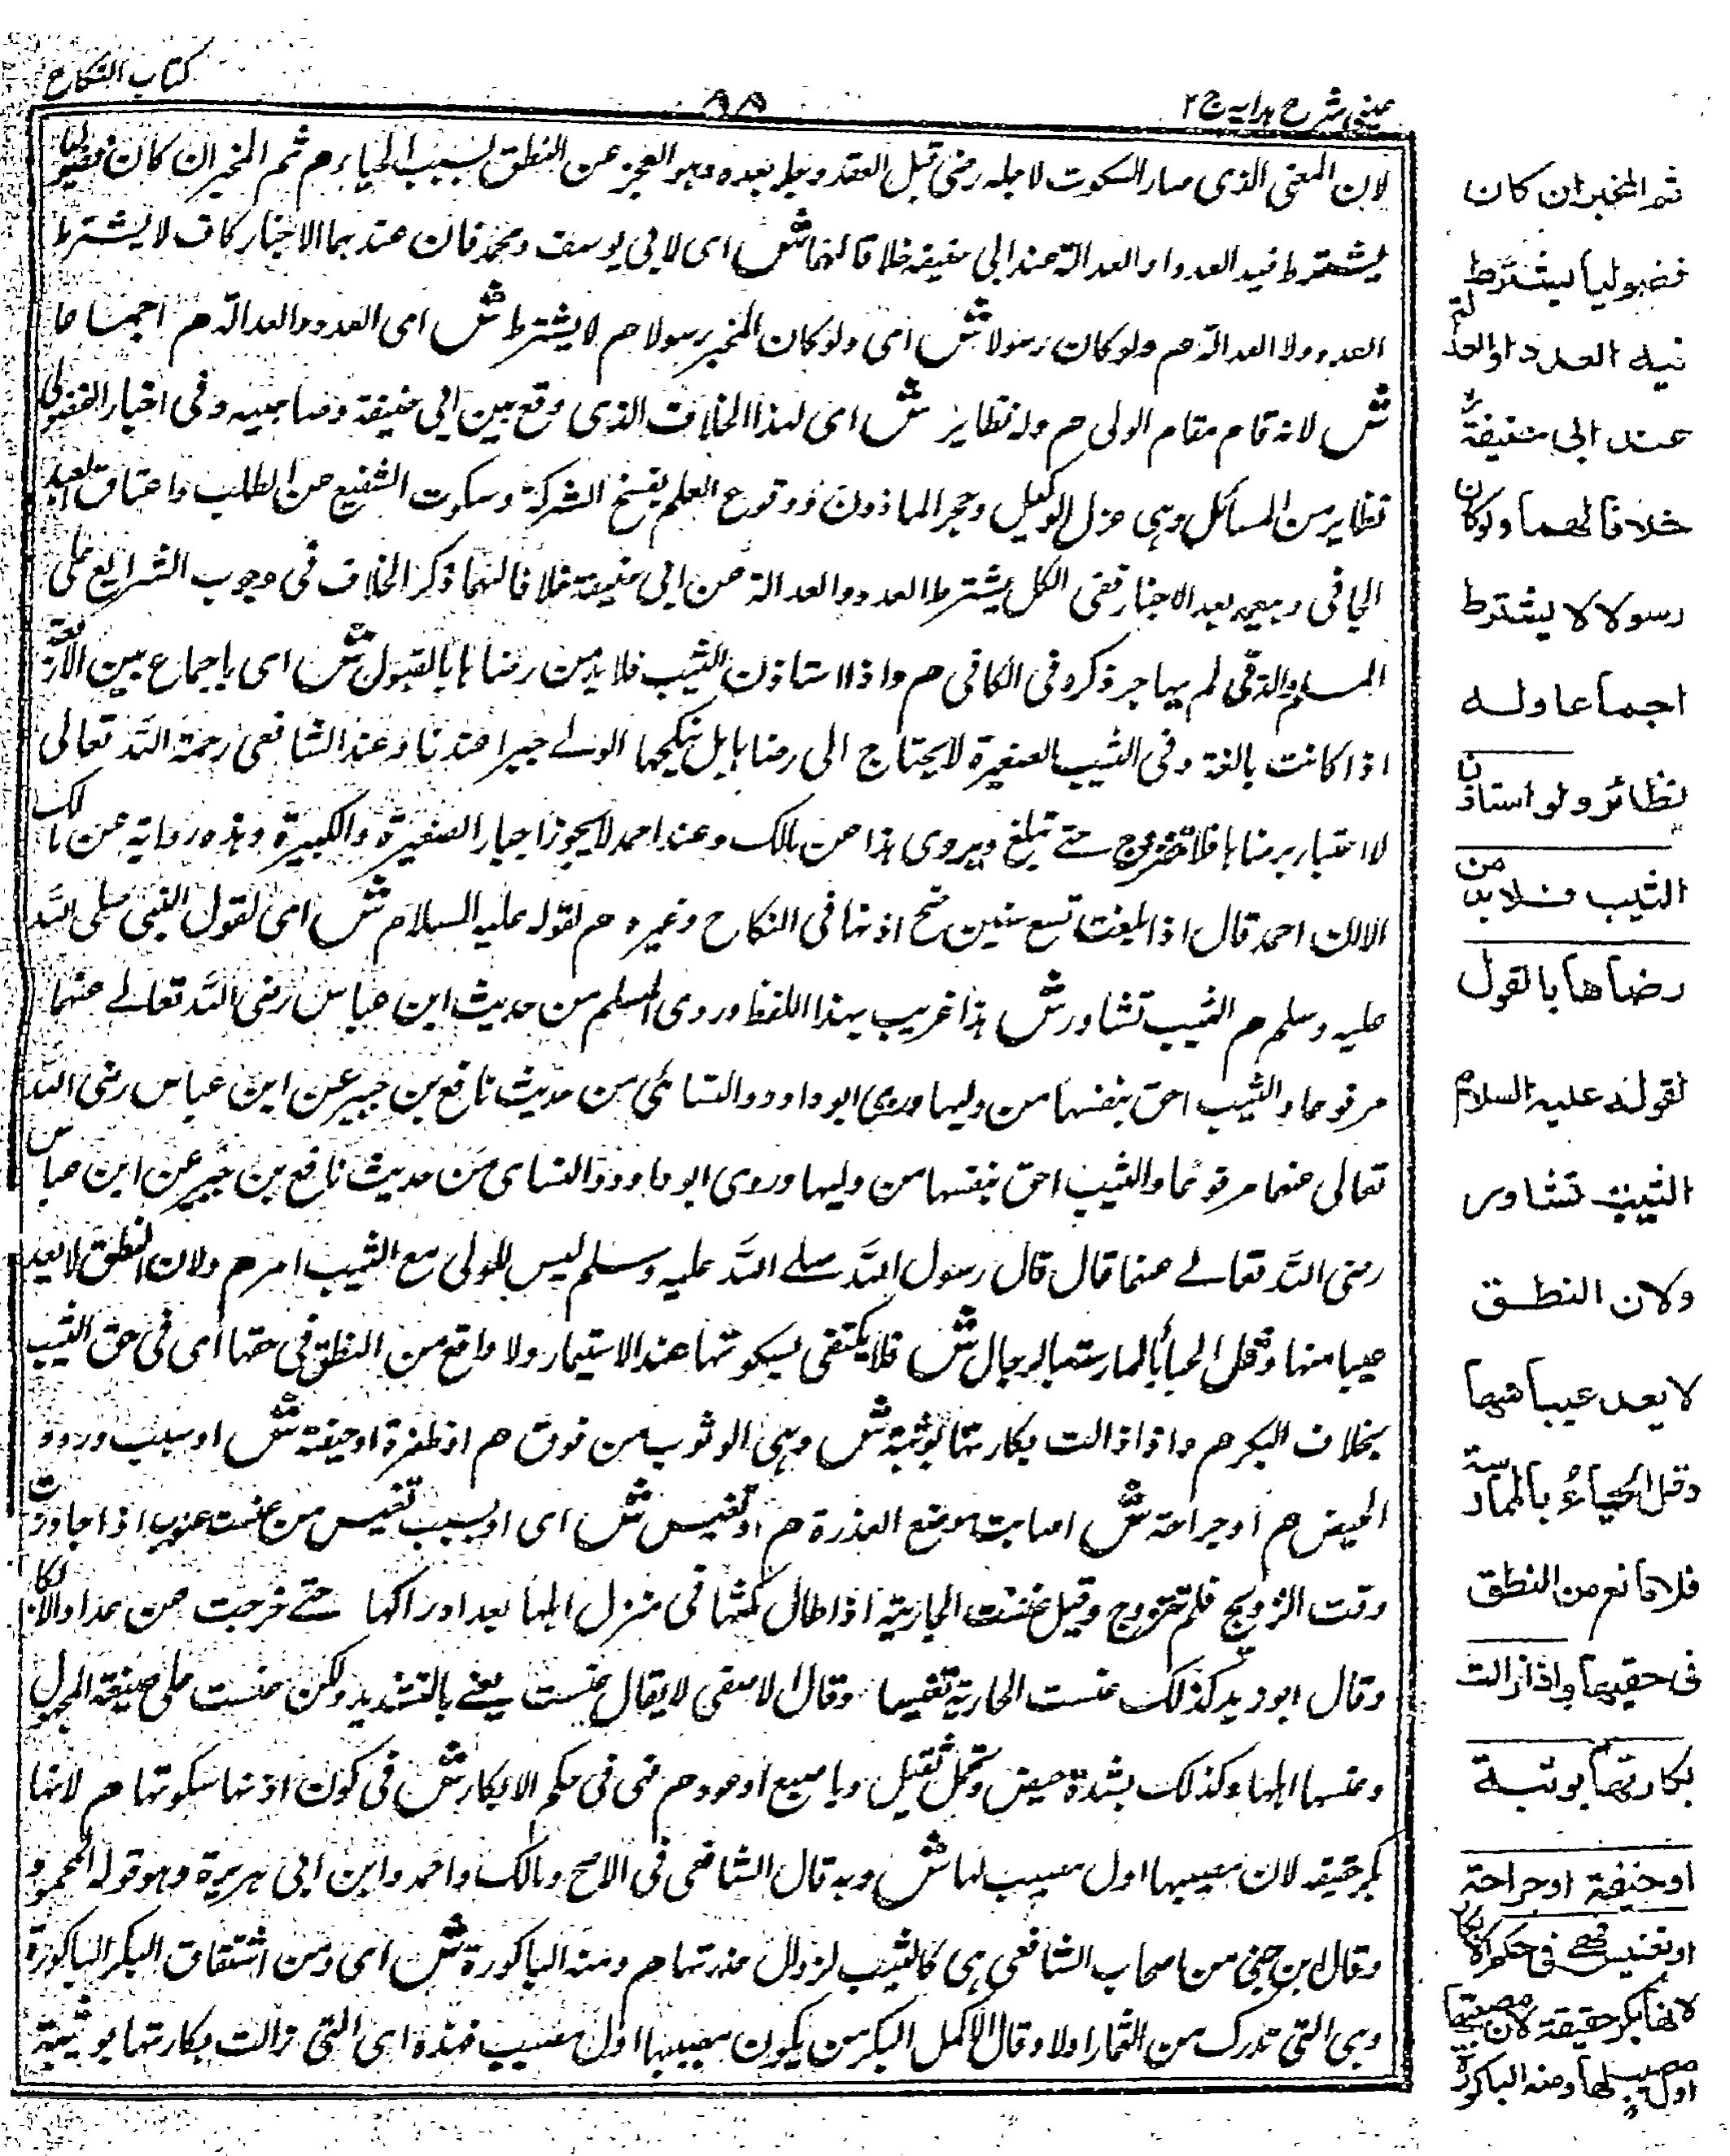 عینی شرح ہدایہ ج ۲
۹۸
كتاب النكاح
لان المعنى الذى صار السكوت لاجله رضى قبل العقد وبعده وهو العجز عن النطق بسبب الحياء م ثم المخبر ان كان فضوليا
يشترط فيه العدد او العدالة عند ابى حنيفة خلافا لهما ش اى لابى يوسف ومحمد فان عندهما الاخبار كاف لا يشترط
العدد ولا العدالة م ولو كان رسولا ش اى ولو كان المخبر رسولا م لا يشترط ش اى العدد والعدالة م اجماعا
ش لانه قام مقام الولى م وله نظاير ش اى لهذا الخلاف الذى وقع بين ابى حنيفة وصاحبيه وفى اخبار الفضولى
نظاير من المسائل وهى عزل الوكيل وحجر الماذون ووقوع العلم بفسخ الشركة وسكوت الشفيع عن الطلب واعتاق العبد
الجانى وبيعه بعد الاخبار ففى الكل يشترط العدد والعدالة عن ابى حنيفة خلافا لهما ذكر الخلاف فى وجوب الشرايع على
المسلم الذى لم يهاجر ذكره فى الكافى م واذا استاذن الثيب فلا بد من رضاها بالقبول ش اى باجماع بين الائمة
اذا كانت بالغة وفى الثيب الصغيرة لا يحتاج الى رضاها بل ينكحها الولے جبرا عندنا وعند الشافعى رحمة الله تعالى
لا اعتبار برضاها فلا تتزوج حتے تبلغ ويروى هذا عن مالك وعند احمد لا يجوز اجبار الصغيرة والكبيرة وهذه رواية عن مالك
الا ان احمد قال اذا بلغت تسع سنين صح اذنها فى النكاح وغيره م لقوله عليه السلام ش اى لقول النبى صلى الله
عليه وسلم م الثيب تشاور ش هذا غريب بهذا اللفظ وروى المسلم من حديث ابن عباس رضى الله تعالے عنهما
مرفوعا والثيب احق بنفسها من وليها وروى ابو داود والنسائى من حديث نافع بن جبير عن ابن عباس رضى الله
تعالى عنهما مرفوعا والثيب احق بنفسها من وليها وروى ابو داود والنساى من حديث نافع بن جبير عن ابن عباس
رضى الله تعالے عنهما قال قال رسول الله صلے الله عليه وسلم ليس للولى مع الثيب امر م ولان النطق لا يعد
عيبا منها وقل الحيأ بالممارسة بالرجال ش فلا يكتفى بسكوتها عند الاستيمار ولا واقع من النطق فى حقها اى فى حق الثيب
بخلاف البكر م واذا زالت بكارتها بوثبة ش وهى الوثوب من فوق م او طفرة او حيضة ش او بسبب ورود
الحيض م او جراحة ش اصابت موضع العذرة م او تعنيس ش اى او بسبب تعنيس من عنست اذا جاوزت
وقت التزويج فلم تتزوج وقيل عنست الجارية اذا طال مكثها فى منزل اهلها بعد ادراكها حتے خرجت من عداد الابكار
وقال ابو زيد كذلك عنست الجارية تعنيسا وقال الاصمعى لا يقال عنست يعنے بالتشديد ولكن عنست على صيغة المجهول
وعنسها اهلها وكذلك بشدة حيض وحمل ثقيل وباصبع او عود م فهى فى حكم الابكار ش فى كون اذنها سكوتها م لانها
بكر حقيقة لان مصيبها اول مصيب لها ش وبه قال الشافعى فى الاصح ومالك واحمد وابن ابى هريرة وهو قوله
وقال ابن من اصحاب الشافعى هى كالثيب لزوال عذرتها م ومنه الباكورة ش اى ومن اشتقاق البكر الباكورة
وهى التى تدرك من الثمار اولا وقال الاكمل البكر من يكون مصيبها اول مصيب فهذه اى التى زالت بكارتها بوثبة
ثم المخبر ان كان
فضوليا يشترط
فيه العدد او العدالة
عند ابى حنيفةؒ
خلافا لهما ولو كان
رسولا لا يشترط
اجماعا وله
نظائر ولو استاذن
الثيب فلا بد من
رضاها بالقول
لقوله عليه السلام
الثيب تشاور
ولان النطق
لا يعد عيبا منها
وقل الحياء بالممارسة
فلا مانع من النطق
فى حقها واذا زالت
بكارتها بوثبة
او حيضة او جراحة
او تعنيس فهى فى حكم الابكار
لانها بكر حقيقة لان مصيبها
اول مصيب لها ومنه الباكورة